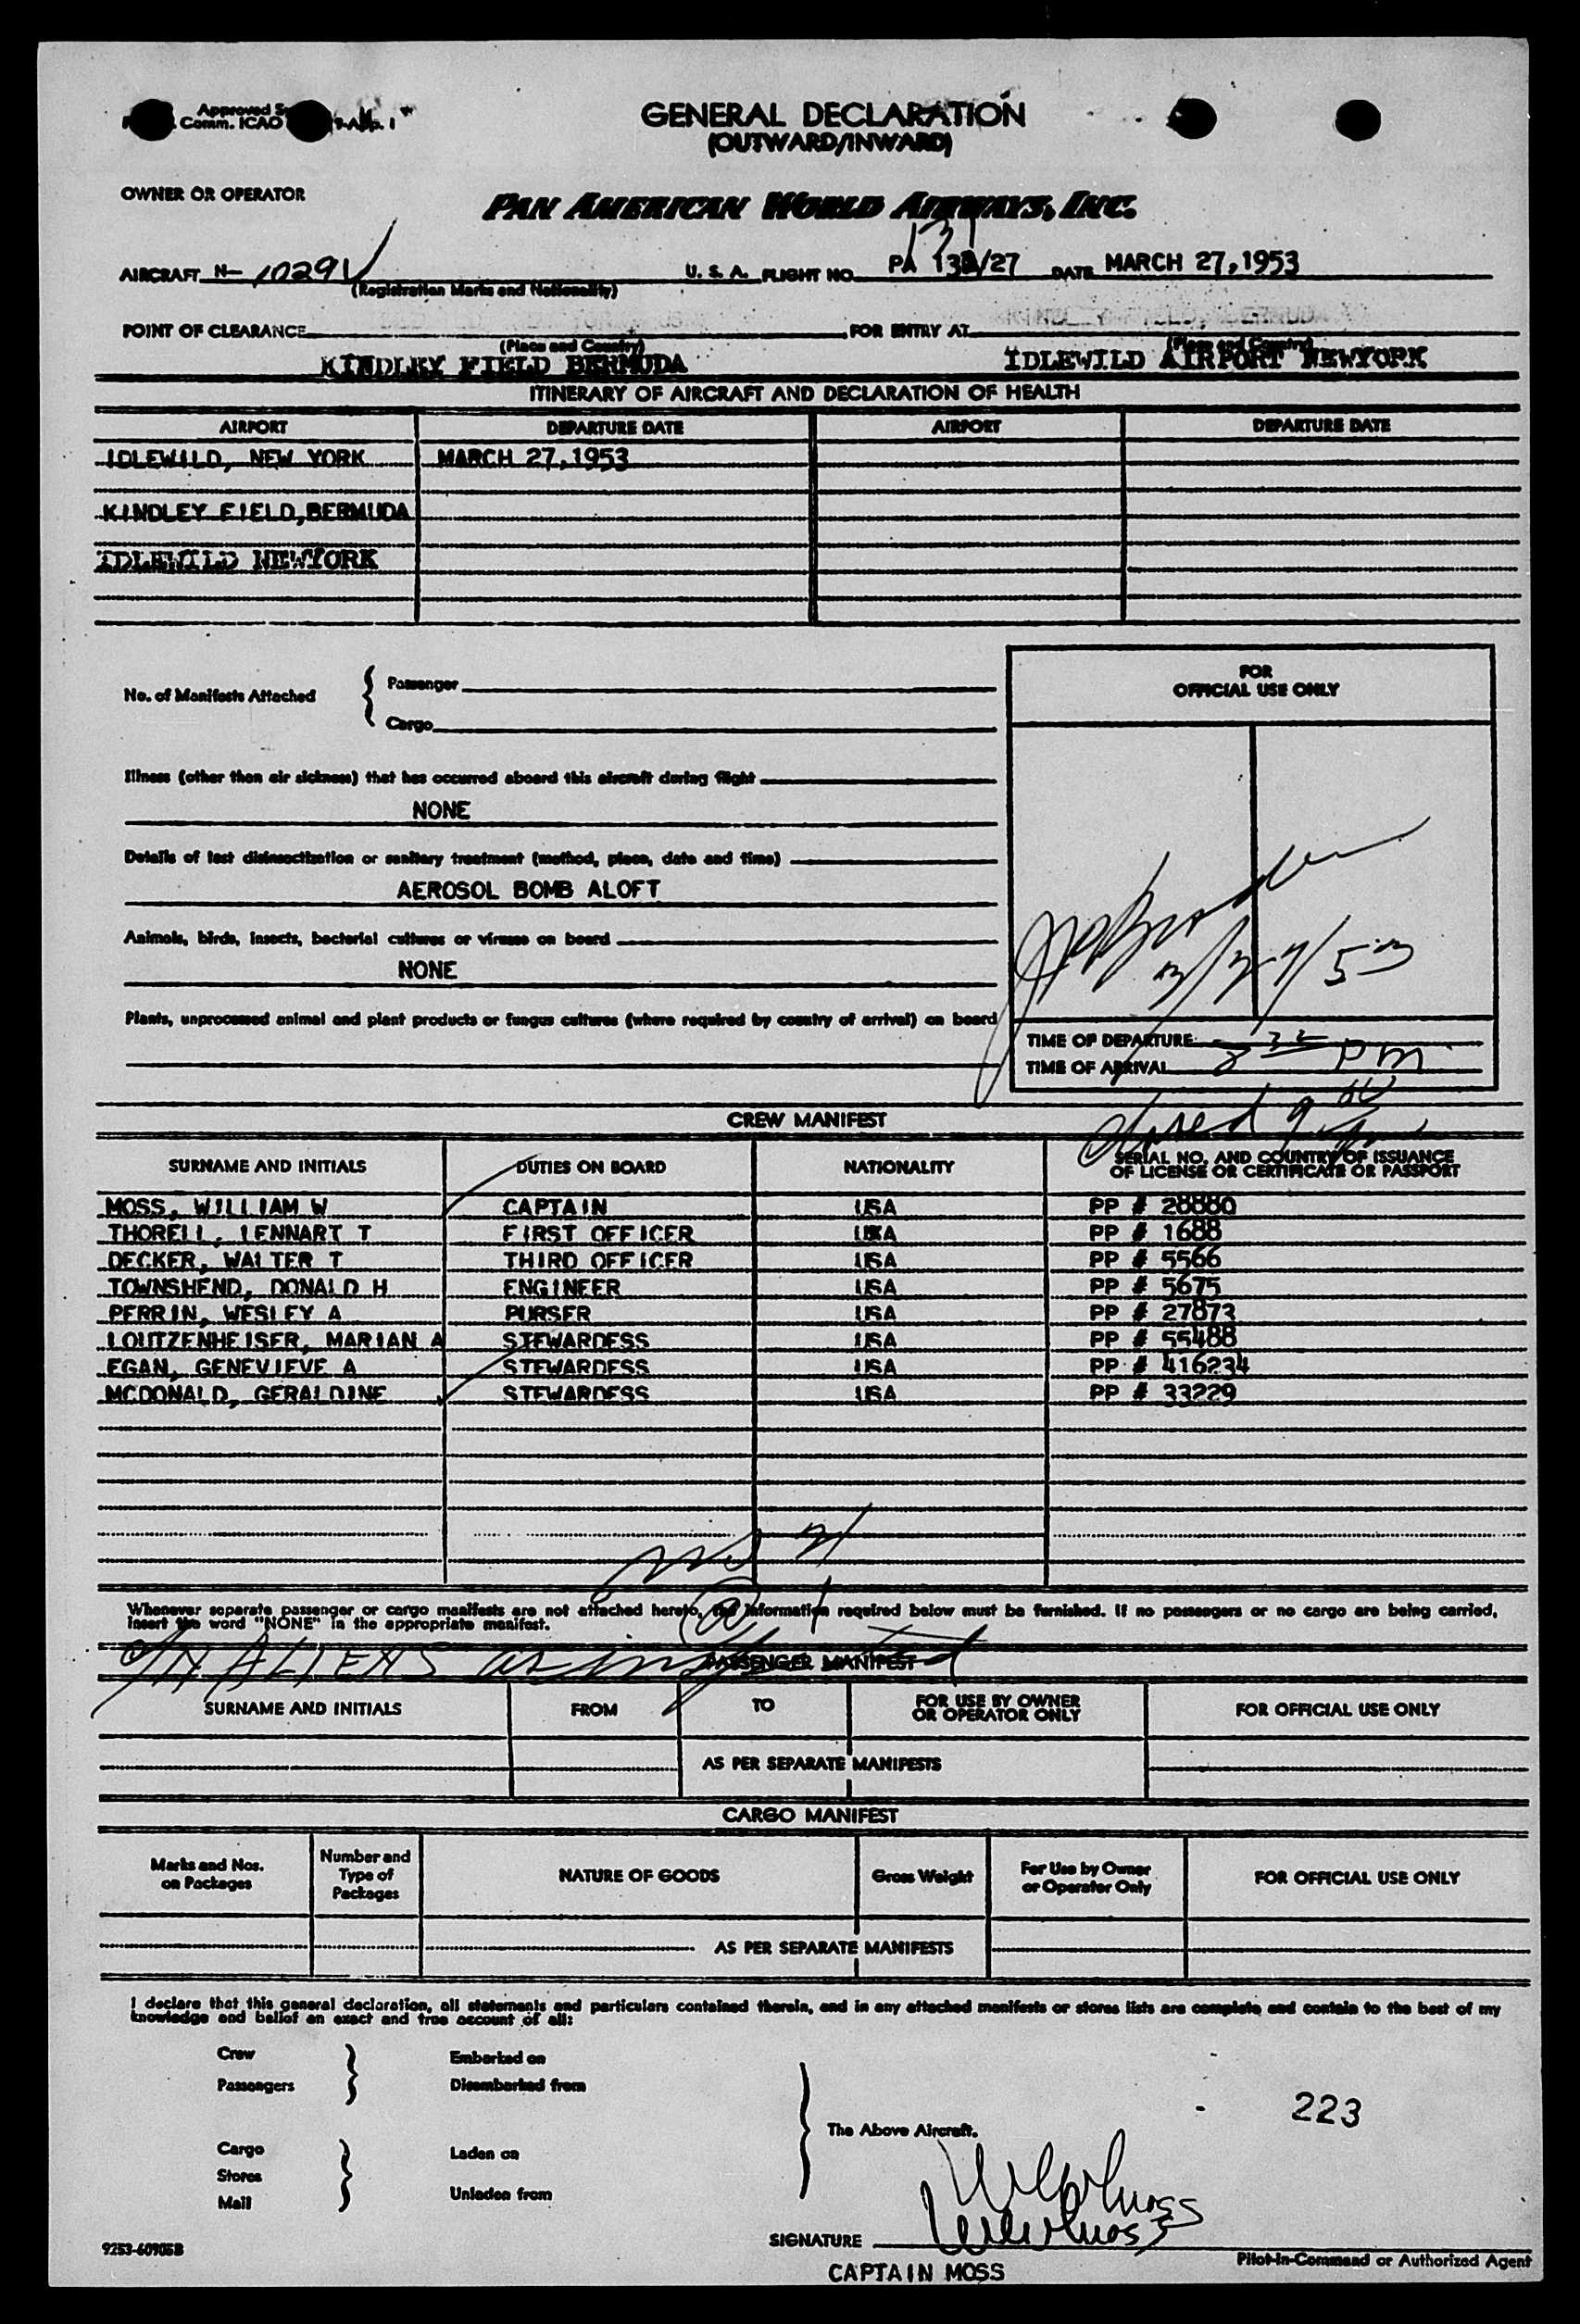 Approved
Comm. ICAO
GENERAL DECLARATION
(OUTWARD/INWARD)
OWNER OR OPERATOR
PAN AMERICAN WORLD AIRWAYS, INC.
AIRCRAFT N- 1029V U. S. A. FLIGHT NO. PA 131/27 DATE MARCH 27,1953
(Registration Marks and Nationality)
POINT OF CLEARANCE FOR ENTRY AT KINDLEY FIELD, BERMUDA
(Place and Country) (Place and Country)
KINDLEY FIELD BERMUDA IDLEWILD AIRPORT NEWYORK
ITINERARY OF AIRCRAFT AND DECLARATION OF HEALTH
AIRPORT DEPARTURE DATE AIRPORT DEPARTURE DATE
IDLEWILD, NEW YORK MARCH 27,1953
KINDLEY FIELD,BERMUDA
IDLEWILD NEWYORK
No. of Manifests Attached
Passenger
Cargo
FOR
OFFICIAL USE ONLY
Illness (other than air sickness) that has occurred aboard this aircraft during flight
NONE
Details of last disinsectization or sanitary treatment (method, place, date and time)
AEROSOL BOMB ALOFT
Animals, birds, insects, bacterial cultures or viruses on board
NONE
3/27/53
Plants, unprocessed animal and plant products or fungus cultures (where required by country of arrival) on board
TIME OF DEPARTURE
TIME OF ARRIVAL 8 32 PM
CREW MANIFEST
closed 9
SURNAME AND INITIALS DUTIES ON BOARD NATIONALITY SERIAL NO. AND COUNTRY OF ISSUANCE
OF LICENSE OR CERTIFICATE OR PASSPORT
MOSS, WILLIAM W CAPTAIN USA PP # 28880
THORELL, LENNART T FIRST OFFICER USA PP # 1688
DECKER, WALTER T THIRD OFFICER USA PP # 5566
TOWNSHEND, DONALD H ENGINEER USA PP # 5675
PERRIN, WESLEY A PURSER USA PP # 27873
LOUTZENHEISER, MARIAN A STEWARDESS USA PP # 55488
EGAN, GENEVIEVE A STEWARDESS USA PP # 416234
MCDONALD, GERALDINE STEWARDESS USA PP # 33229
Whenever separate passenger or cargo manifests are not attached hereto, the information required below must be furnished. If no passengers or no cargo are being carried,
insert the word "NONE" in the appropriate manifest.
ALIENS
PASSENGER MANIFEST
SURNAME AND INITIALS FROM TO FOR USE BY OWNER
OR OPERATOR ONLY FOR OFFICIAL USE ONLY
AS PER SEPARATE MANIFESTS
CARGO MANIFEST
Marks and Nos.
on Packages Number and
Type of
Packages NATURE OF GOODS Gross Weight For Use by Owner
or Operator Only FOR OFFICIAL USE ONLY
AS PER SEPARATE MANIFESTS
I declare that this general declaration, all statements and particulars contained therein, and in any attached manifests or stores lists are complete and contain to the best of my
knowledge and belief an exact and true account of all:
Crew Embarked on
Passengers Disembarked from
223
The Above Aircraft.
Cargo Laden on
Stores
Mail Unladen from
WWMoss
SIGNATURE
9253-60905B
Pilot-in-Command or Authorized Agent
CAPTAIN MOSS